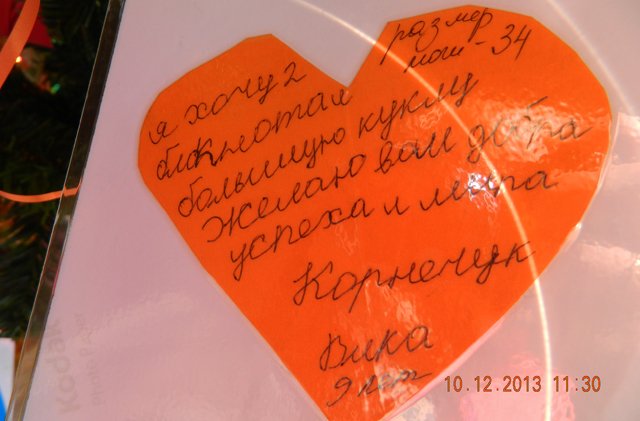 размер
мой - 34
я хочу 2
блокнота и
большую куклу
Желаю вам добра
успеха и мира
Корнечук
Вика
9 лет
Kodak
10.12.2013 11:30